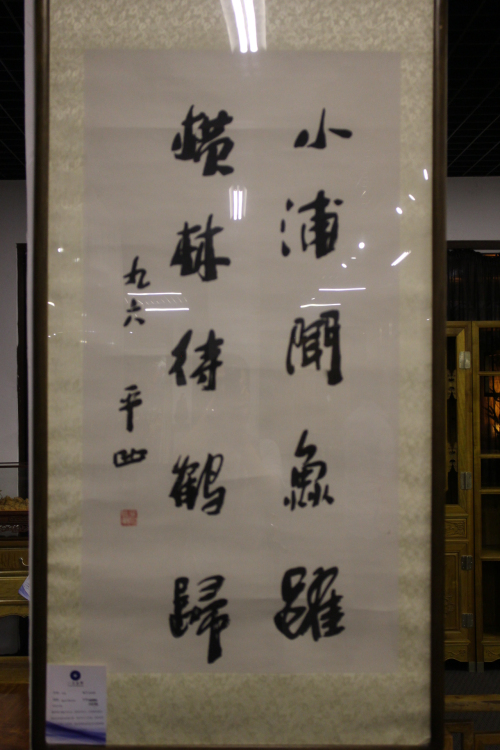 小浦聞魚躍
橫林待鶴歸
九六 平山